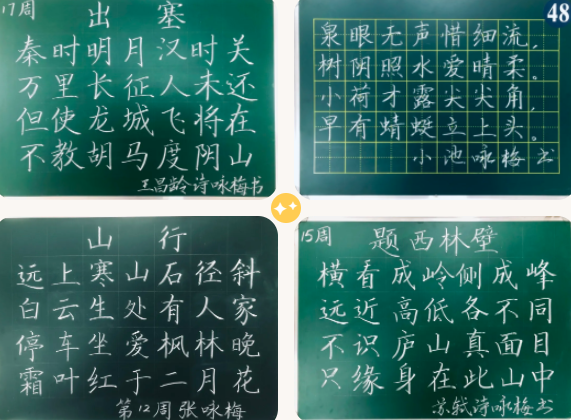 17周 出塞
秦时明月汉时关
万里长征人未还
但使龙城飞将在
不教胡马度阴山
王昌龄诗咏梅书
48
泉眼无声惜细流,
树阴照水爱晴柔。
小荷才露尖尖角,
早有蜻蜓立上头。
小池咏梅书
山行
远上寒山石径斜
白云生处有人家
停车坐爱枫林晚
霜叶红于二月花
第12周张咏梅
15周 题西林壁
横看成岭侧成峰
远近高低各不同
不识庐山真面目
只缘身在此山中
苏轼诗咏梅书